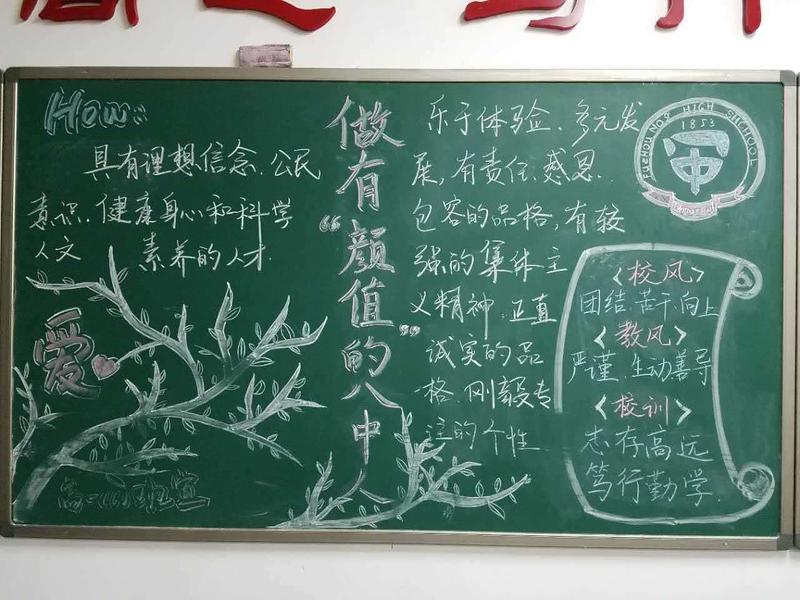 How:
具有理想信念、公民
意识、健康身心和科学
人文 素养的人才.
爱
做有“颜值”的八中人
乐于体验、多元发
展,有责任、感恩、
包容的品格,有较
强的集体主
义精神、正直
诚实的品
格、刚毅专
注的个性
FUZHOU NO.8 HIGH SHCHOOL
1853
八中
<校风>
团结、苦干、向上
<教风>
严谨、生动善导
<校训>
志存高远
笃行勤学.